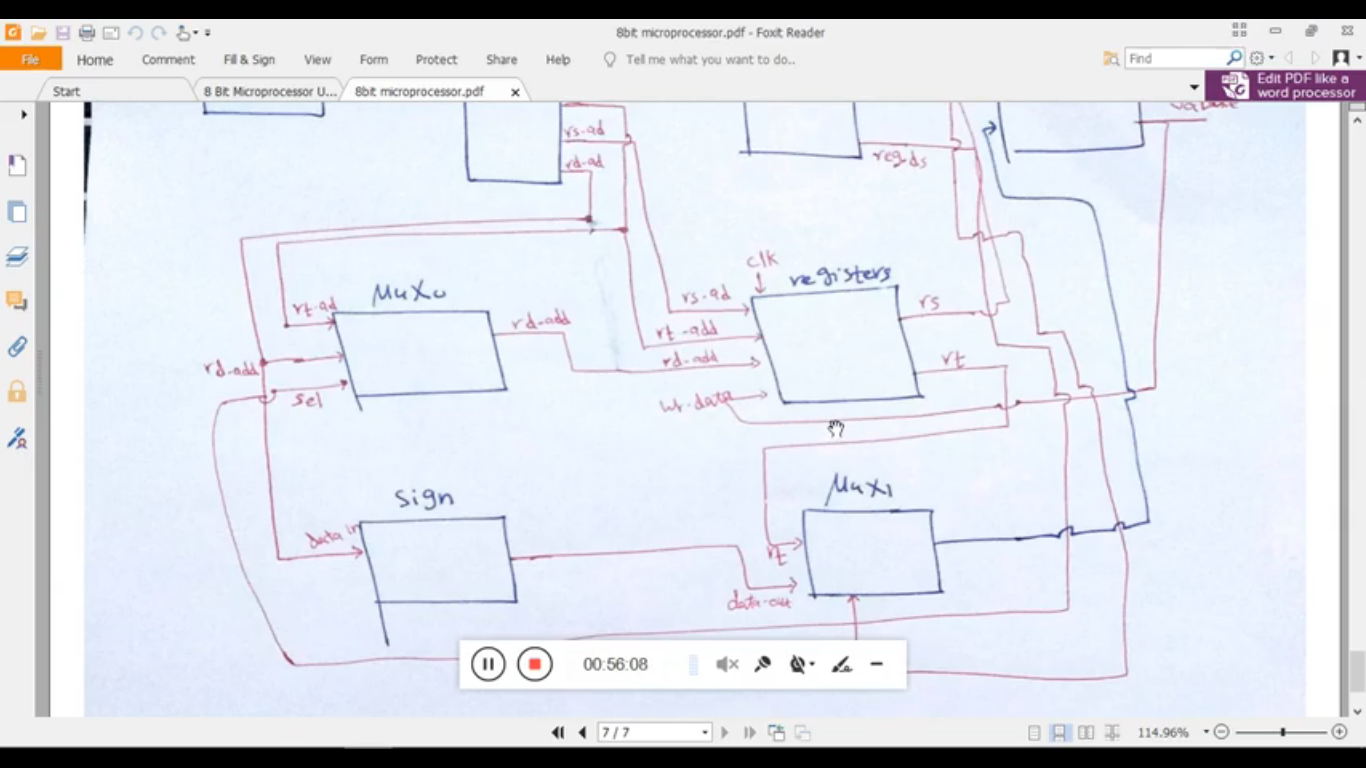 8bit microprocessor.pdf - Foxit Reader
File Home Comment Fill & Sign View Form Protect Share Help Tell me what you want to do.. Find
Start 8 Bit Microprocessor U... 8bit microprocessor.pdf Edit PDF like a word processor
rs-ad
rd-ad
reg-ds
clk
registers
Mux0
rt-ad
rd-add
rs-ad
rs
rt-add
rd-add
rt
rd-add
sel
wr-data
Mux1
sign
data in
rt
data-out
00:56:08
7 / 7
114.96%